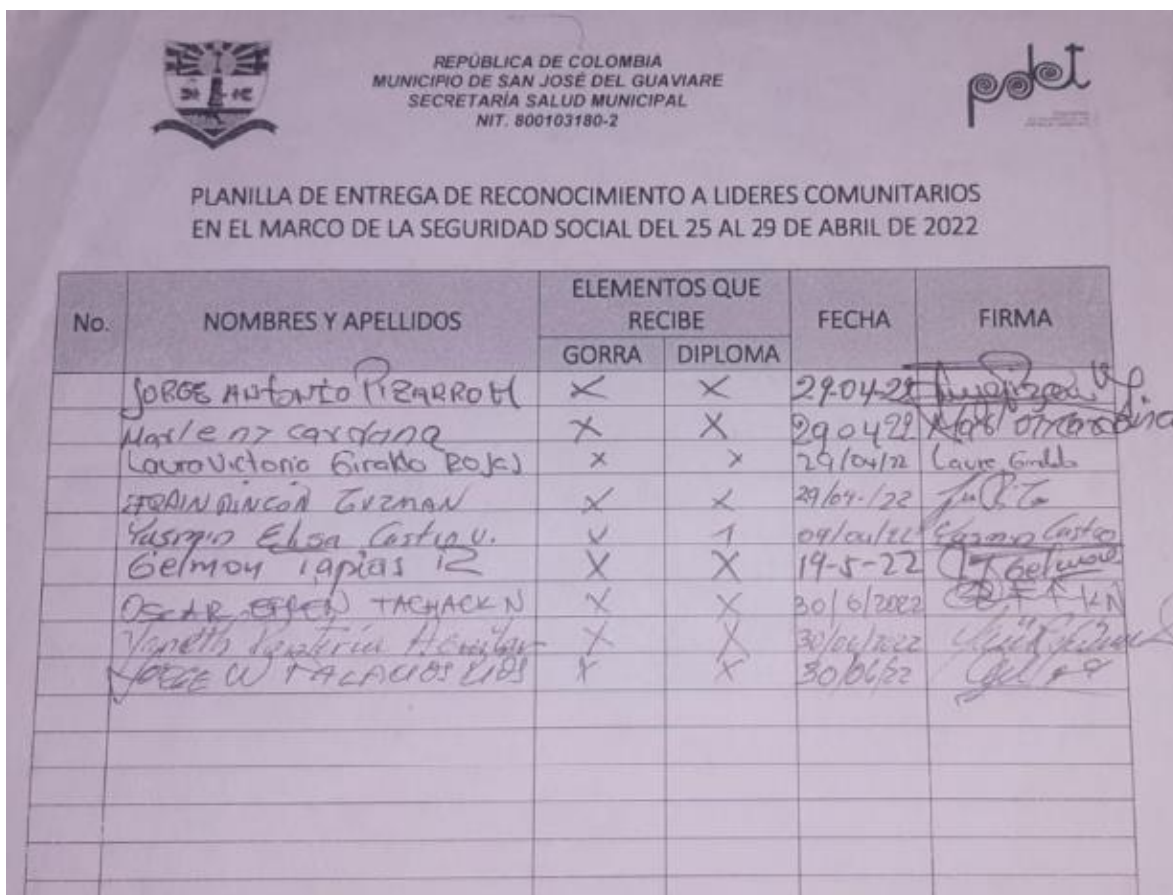 REPÚBLICA DE COLOMBIA
MUNICIPIO DE SAN JOSÉ DEL GUAVIARE
SECRETARÍA SALUD MUNICIPAL
NIT. 800103180-2
pdet
PLANILLA DE ENTREGA DE RECONOCIMIENTO A LIDERES COMUNITARIOS
EN EL MARCO DE LA SEGURIDAD SOCIAL DEL 25 AL 29 DE ABRIL DE 2022
No. NOMBRES Y APELLIDOS ELEMENTOS QUE RECIBE FECHA FIRMA
GORRA DIPLOMA
JORGE ANTONIO PIZARRO H X X 29-04-22
Marleny cardona X X 290422
Laura Victoria Giraldo Rojas X X 29/04/22 Laura Giraldo
EFRAIN RINCON GUZMAN X X 29/04-/22
Yasmin Elisa Castro V. Castro
Gelmon Tapias R X X 19-5-22
OSCAR EFREN TACHACK N X X 30/6/2022
Yaneth X X
JORGE W PALACIOS RIOS X X 30/06/22